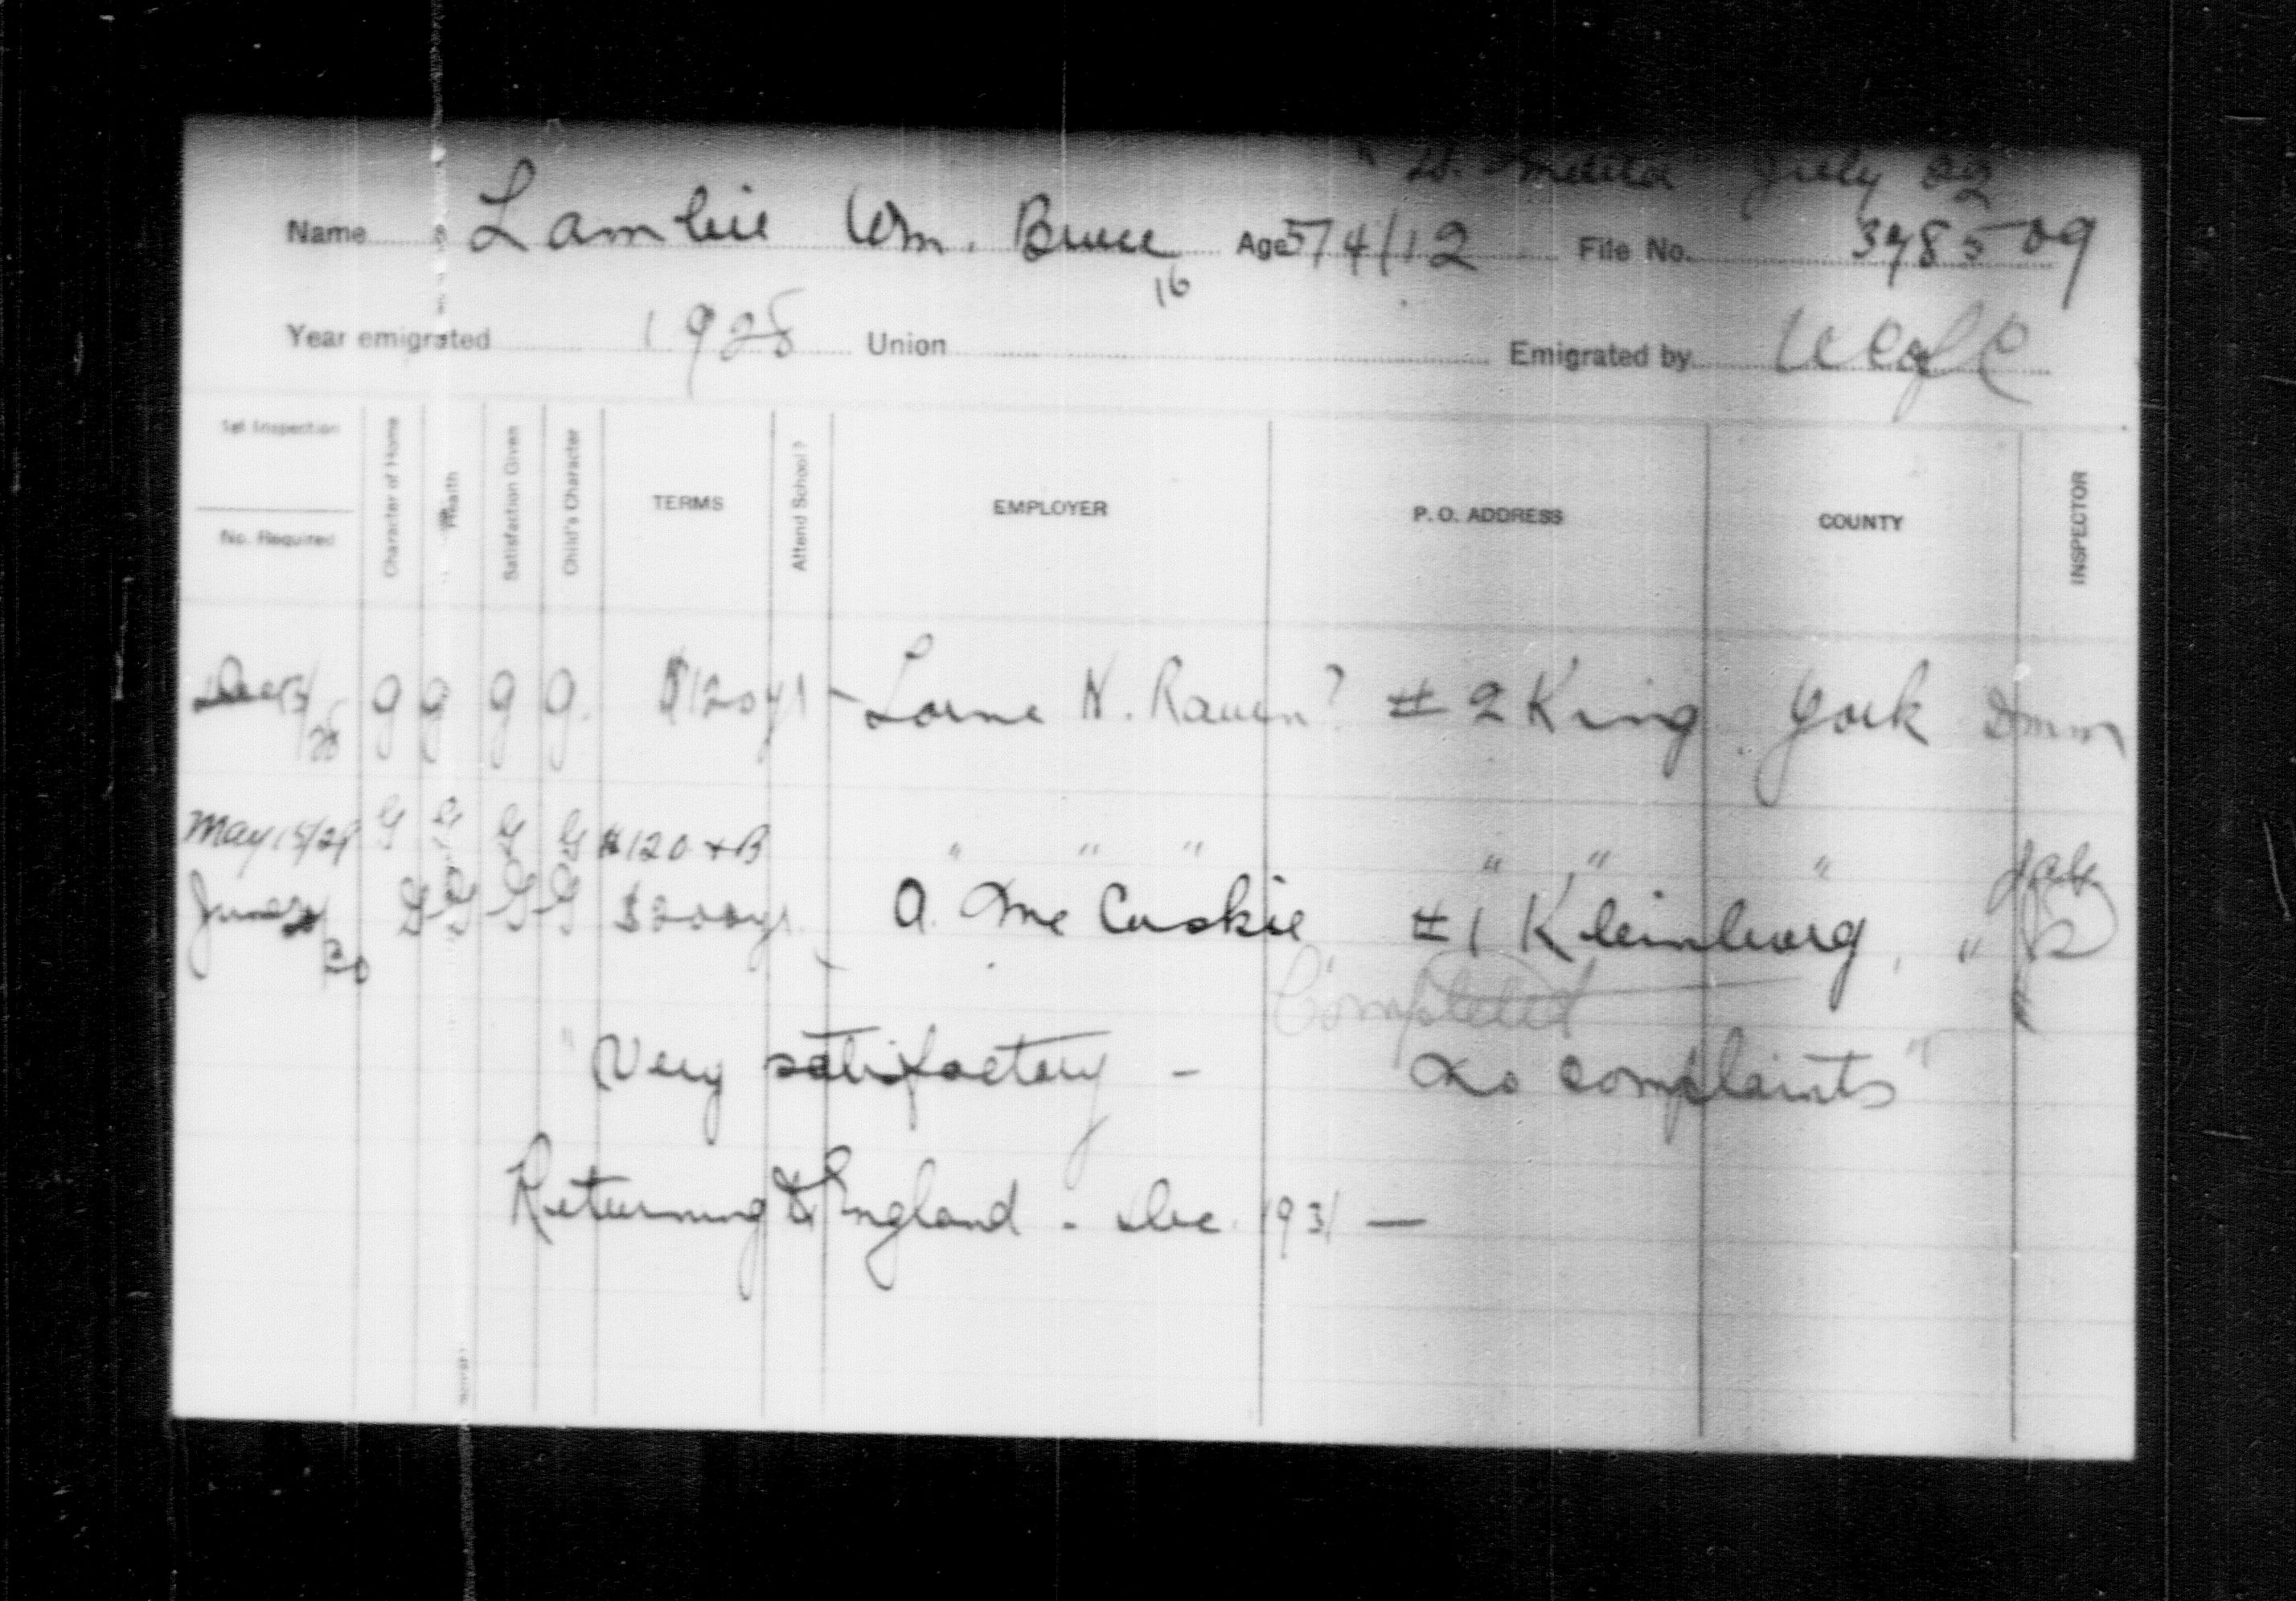 July
Name Lambie Wm. Bruce Age 5/4/12 File No. 378509
16
Year emigrated 1928 Union Emigrated by
1st Inspection
No. Required
Character of Home
Health
Satisfaction Given
Child's Character
TERMS
Attend School?
EMPLOYER
P. O. ADDRESS
COUNTY
INSPECTOR
g g g g. $120 yr - Lorne N. Raven? #2 King. York
May 15/29 G G G G $120 + B " " " " " "
June 30 G G G G $200 yr. A. McCuskie #1 Kleinburg, "
Completed
"Very satisfactory - No complaints"
Returning to England - Dec. 1931 -